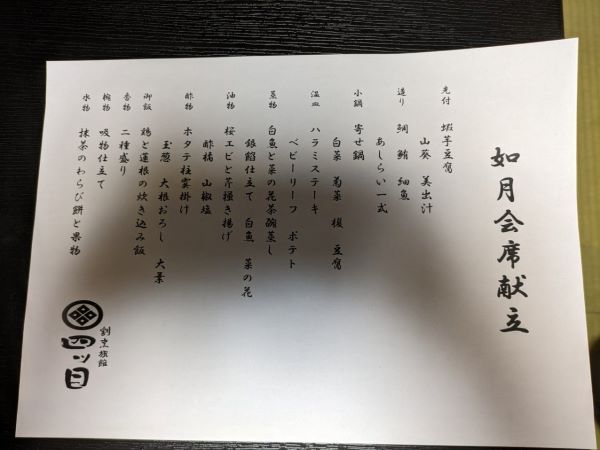 如月会席献立
先付 蝦芋豆腐
山葵 美出汁
造り 鯛 鮪 細魚
あしらい一式
小鍋 寄せ鍋
白菜 菊菜 榎 豆腐
温皿 ハラミステーキ
ベビーリーフ ポテト
蒸物 白魚と菜の花茶碗蒸し
銀餡仕立て 白魚 菜の花
油物 桜エビと芹掻き揚げ
酢橘 山椒塩
酢物 ホタテ柱霙掛け
玉葱 大根おろし 大葉
御飯 鶏と蓮根の炊き込み飯
香物 二種盛り
椀物 吸物仕立て
水物 抹茶のわらび餅と果物
割烹旅館
四ツ目